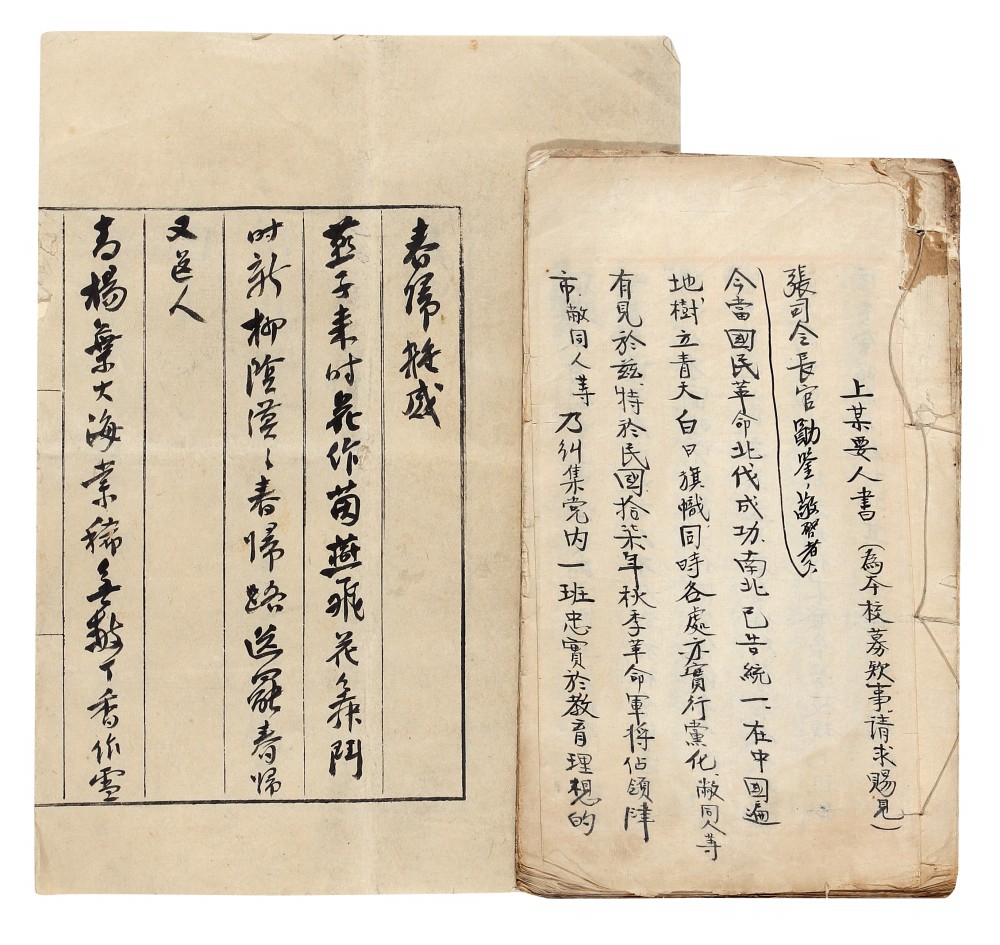 上某要人書(為本校募欵事,請求賜見)
張司令長官勛鑒,敬啓者,
今當國民革命北伐成功,南北已告統一,在中國遍
地樹立青天白日旗幟同時各處亦實行黨化,敝同人等
有見於兹,特於民國拾柒年秋季革命軍将佔領津
市,敝同人等乃糾集党内一班忠實於教育理想的
春歸
燕子来时花作茵燕飛花舞鬥
时新柳陰漠〻春歸路送罷春歸
又送人
青楊葉大海棠稀無数丁香作雪